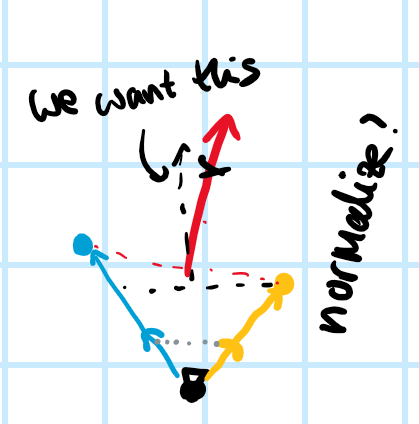 we want this
normalize!